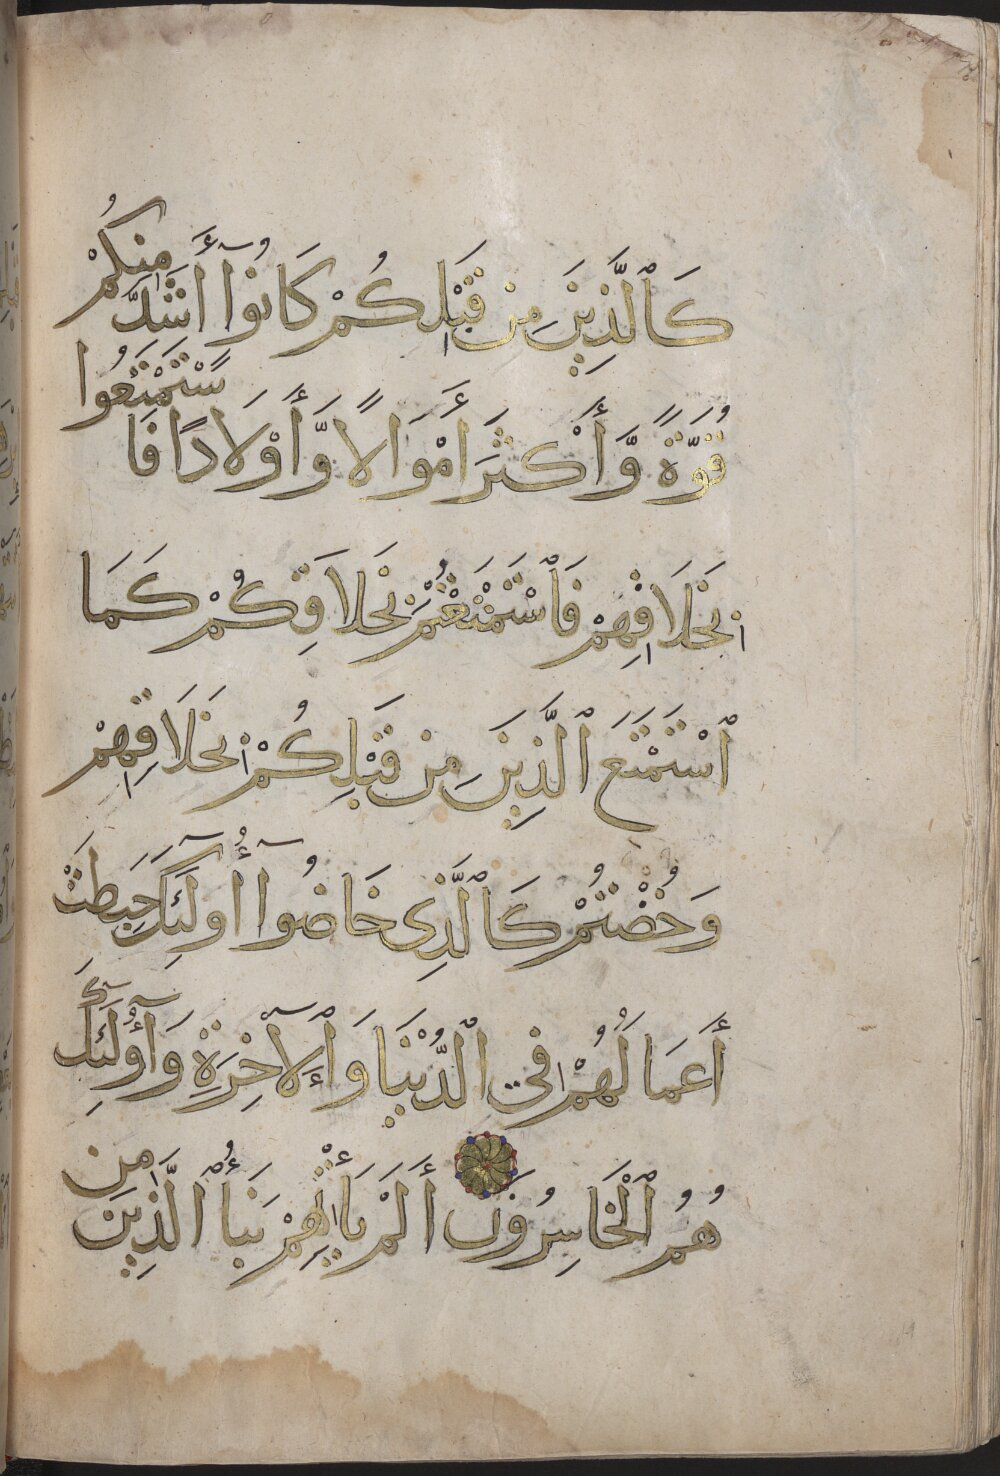 كَٱلَّذِينَ مِن قَبْلِكُمْ كَانُوٓا۟ أَشَدَّ مِنكُمْ
قُوَّةً وَّأَكْثَرَ أَمْوَالًا وَّأَوْلَادًا فَاسْتَمْتَعُوا
بِخَلَاقِهِمْ فَٱسْتَمْتَعْتُمْ بِخَلَاقِكُمْ كَمَا
ٱسْتَمْتَعَ ٱلَّذِينَ مِن قَبْلِكُمْ بِخَلَاقِهِمْ
وَخُضْتُمْ كَٱلَّذِى خَاضُوٓا أُو۟لَٰٓئِكَ حَبِطَتْ
أَعْمَالُهُمْ فِي ٱلدُّنْيَا وَٱلْآخِرَةِ وَأُو۟لَٰٓئِكَ
هُمُ ٱلْخَاسِرُونَ أَلَمْ يَأْتِهِمْ نَبَأُ ٱلَّذِينَ مِن